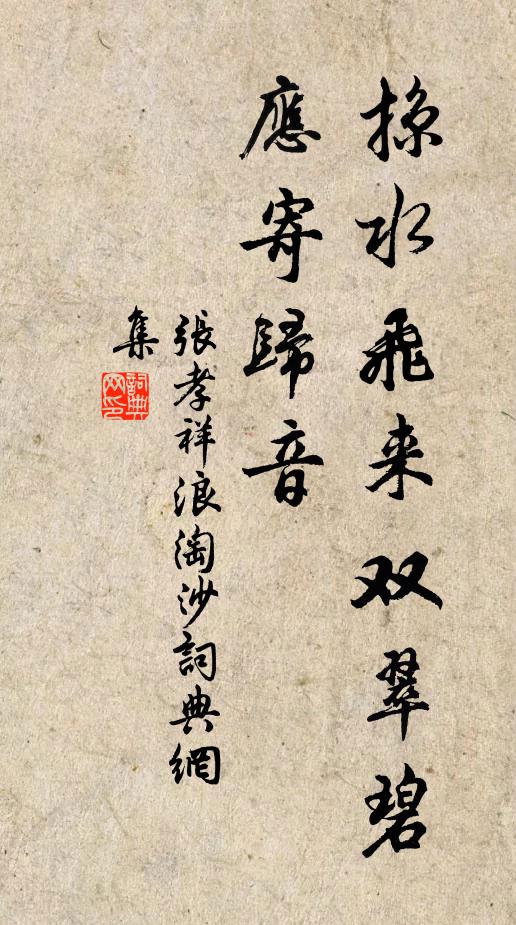 掠水飛来双翠碧
應寄歸音
張孝祥浪淘沙詞典網
集
詞典网印